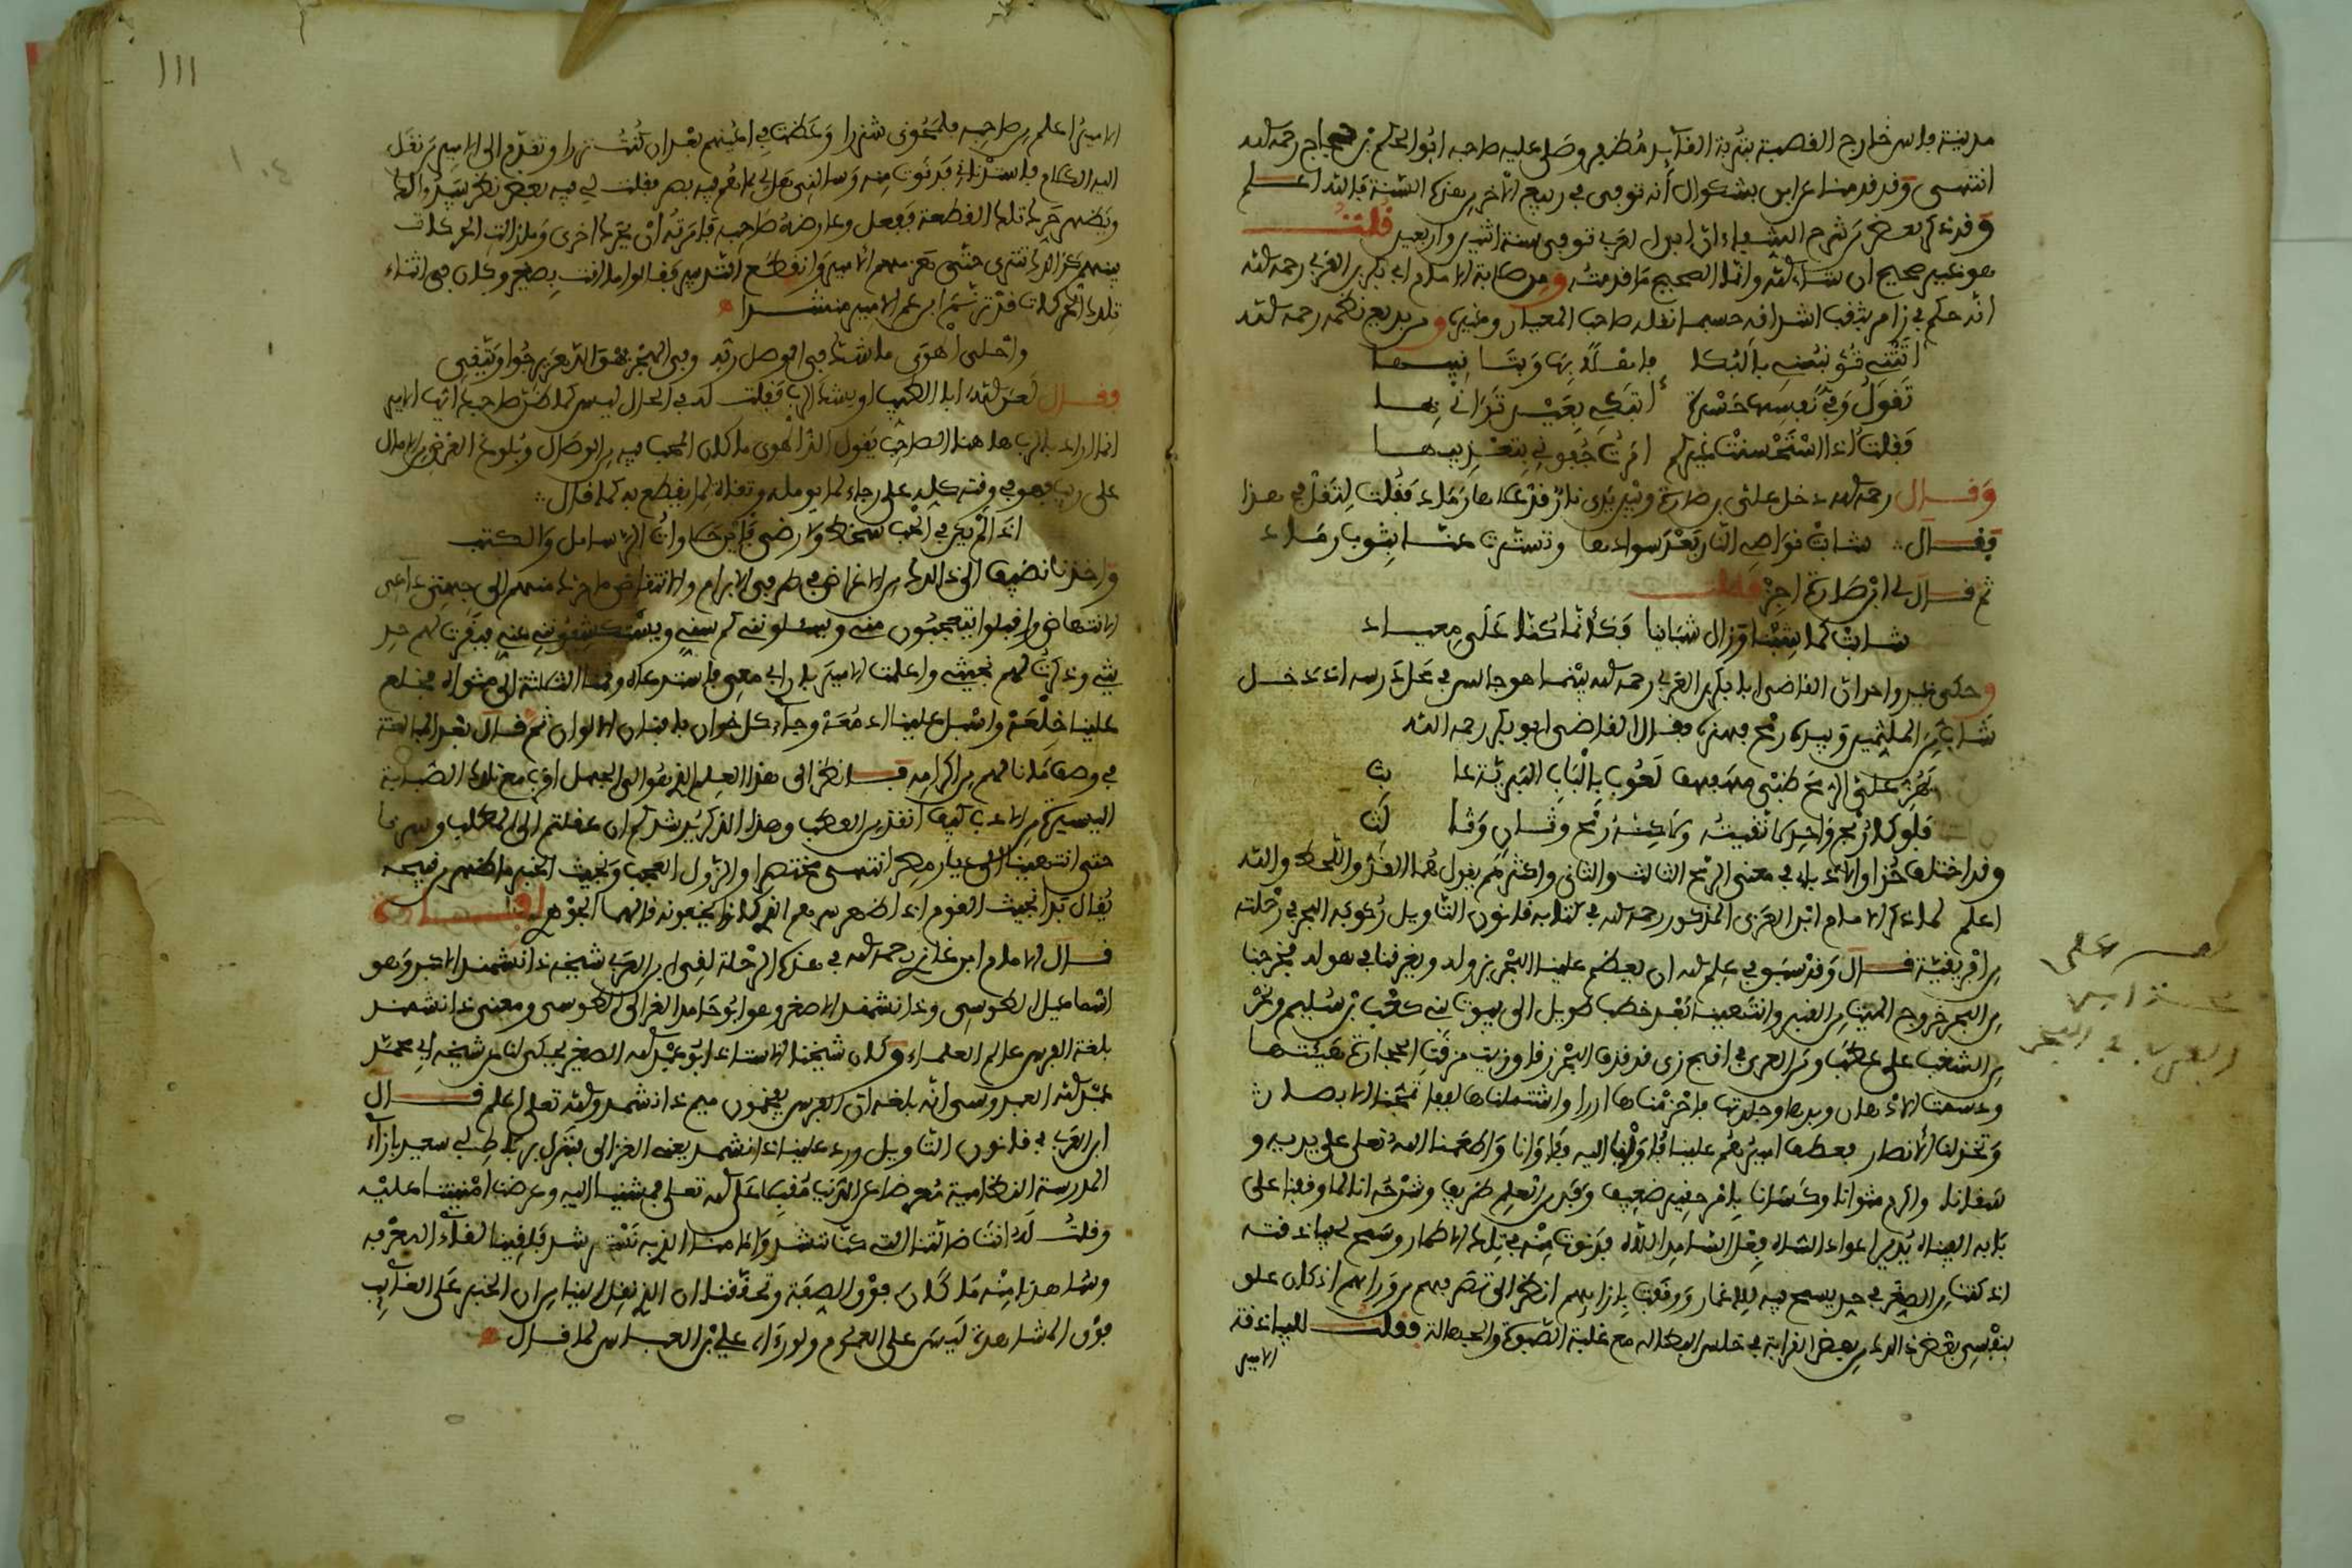 مدينة فاس خارج القصبة بتربة القايد مظفر وصلى عليه صاحبه ابو الحكم بن حجاج رحمه الله
انتهى وقد قدمنا عن ابن بشكوال أنه توفي في ربيع الاخر من هذه السنة فالله اعلم
وقد ذكر بعض من شرح الشفاء ان ابن العربي توفي سنة اثنين واربعين قلت
هو غير صحيح ان شاء الله وانما الصحيح ما قدمته ومن حكاية الامام ابي بكر بن العربي رحمه الله
انه حكم في زامر بثقب اشداقه حسبما نقله صاحب المعيار وغيره ومن بديع نظمه رحمه الله
اتتني تؤنبني بالبكا فاهلا بها وبتانيبها
تقول وفي نفسها حسرة أتبكي بعين تراني بها
فقلت اذا استحسنت غيركم امرت جفوني بتعذيبها
وقال رحمه الله دخل علي ابن صارة وبين يدي نار قد علاها رماد فقلت لتقل في هذا
فقال شابت نواصي النار بعد سوادها وتسترت عنا بثوب رماد
ثم قال لي ابن صارة اجز فقلت
شابت كما شبنا وزال شبابنا فكأنما كنا على ميعاد
وحكى غير واحد ان القاضي ابا بكر بن العربي رحمه الله بينما هو جالس في محل درسه اذ دخل
شاب من الملثمين وبيده رمح فهزه فقال القاضي ابو بكر رحمه الله
يهز علي الرمح ظبي مهفهف لعوب بالباب البرية عا بث
فلو كان رمح واحد لاتقيته ولكنه رمح وثان وثا لث
وقد اختلف حذاق الادباء في معنى الرمح الثالث والثاني واكثرهم يقول هما القد واللحظ والله
اعلم كما ذكر الامام ابن العربي المذكور رحمه الله في كتابه قانون التاويل ركوبه البحر في رحلته
من افريقية قال وقد سبق في علم الله ان يعظم علينا البحر بزوله ويغرقنا في هوله فخرجنا
من البحر خروج الميت من القبر وانتهينا بعد خطب طويل الى بيوت بني كعب بن سليم ونحن
من السغب على عطب ومن العري في اقبح زي قد قذف البحر زقاق زيت مزقت الحجارة هيئتها
ودسمت الادهان وبرها وجلدتها فاحتزمناها ازرا واشتملناها لففا تمجنا الابصار
وتخذلنا الانصار فعطف اميرهم علينا فاوينا اليه فآوانا واطعمنا الله تعالى على يديه و
سقانا واكرم مثوانا وكسانا بامر حقير ضعيف وفن من العلم طريف وشرحه انا لما وقفنا على
بابه الفيناه يدير اعواد الشاه فعل السامد اللاه فدنوت منه في تلك الاطمار وسمح لي بياذقته
اذ كنت من الصغر في حد يسمح فيه للاغمار ووقفت بازائهم انظر الى تصرفهم من ورائهم اذ كان علق
بنفسي بعض ذلك من بعض القرابة في خلس البطالة مع غلبة الصبوة والجهالة فقلت للبياذقة
الامير
الامير اعلم من صاحبه فلمحوني شزرا وعظمت في اعينهم بعد ان كنت نزرا وتقدم الى الامير من نقل
اليه الكلام فاستدناني فدنوت منه وسالني هل لي بما هم فيه بصر فقلت لي فيه بعض نظر سيبدو لك
ويظهر حرك تلك القطعة ففعل وعارضه صاحبه فامرته ان يحرك اخرى وما زالت الحركات
بينهم كذلك تترى حتى هزمهم الامير وانقطع التدبير فقالوا ما انت بصغير وكان في اثناء
تلك الحركات قد ترنم ابن عم الامير منشدا
واحلى الهوى ما شك في الوصل ربه وفي الهجر فهو الدهر يرجو ويتقي
وقال لعن الله ابا الطيب او يشك الرب فقلت له في الحال ليس كما ظن صاحبك ايها الامير
انما اراد بالرب هاهنا الصاحب يقول الذ الهوى ما كان المحب فيه من الوصال وبلوغ الغرض من الامال
على ريب فهو في وقته كله على رجاء لما يومله وتقاة لما يقطع به كما قال
اذا لم يكن في الحب سخط ولا رضى فاين حلاوات الرسائل والكتب
واخذنا نضيف الى ذلك من الاغراض في طرفي الابرام والانتقاض ما حرك منهم الى جهتي داعي
الانتهاض واقبلوا يتعجبون مني ويسئلونني كم سني ويستكشفونني عني فبقرت لهم حد
يثي وذكرت لهم نجيثي واعلمت الامير بان ابي معي فاستدعاه وقمنا الثلاثة الى مثواه فخلع
علينا خلعه واسبل علينا ادمعه وجاء كل خوان بافنان الالوان ثم قال بعد المبالغة
في وصف ما نالهم من اكرامه فانظر الى هذا العلم الذي هو الى الجهل اقرب مع تلك الصبابة
اليسيرة من الادب كيف انقذ من العطب وهذا الذكر يرشدكم ان عقلتم الى المطلب وسرنا
حتى انتهينا الى ديار مصر انتهى مختصرا والزول العجب ونجيث الخبر ما ظهر من قبيحه
يقال بدا نجيث القوم اذا ظهر سرهم الذي كانوا يخفونه قالهما الجوهري افادة
قال الامام ابن غازي رحمه الله في هذه الرحلة لقي ابن العربي شيخه دانشمند الاكبر وهو
اسماعيل الطوسي ودانشمند الاصغر وهو ابو حامد الغزالي الطوسي ومعنى دانشمند
بلغة الفرس عالم العلماء وكان شيخنا الاستاذ ابو عبد الله الصغير يحكي لنا عن شيخه ابي محمد
عبد الله العبدوسي انه بلغه ان الفرس يفخمون ميم دانشمند والله تعالى اعلم قال
ابن العربي في قانون التاويل ورد علينا دانشمند يعني الغزالي فنزل برباط ابي سعيد بازاء
المدرسة النظامية معرضا عن الدنيا مقبلا على الله تعالى فمشينا اليه وعرضنا امنيتنا عليه
وقلت له انت ضالتنا التي كنا ننشد وامامنا الذي به نسترشد فلقينا لقاء المعرفة
وشاهدنا منه ما كان فوق الصفة وتحققنا ان الذي نقل الينا من ان الخبر على الغائب
فوق المشاهدة ليس على العموم ولو رءاه علي بن العباس لما قال